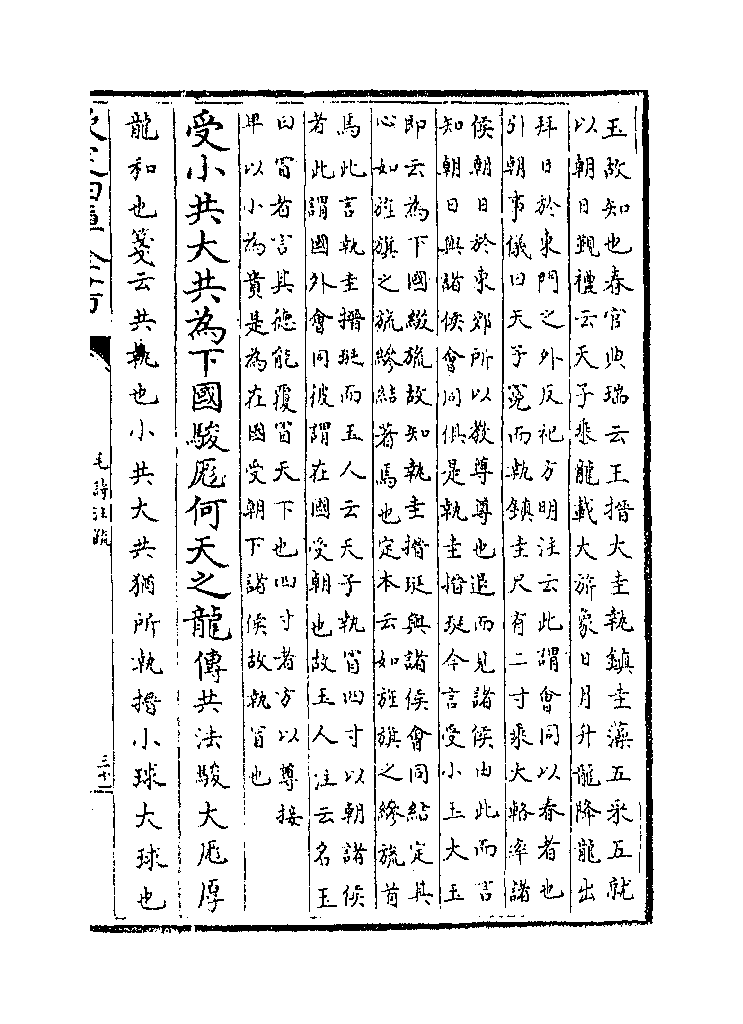 玉故知也春官典瑞云王搢大圭執鎮圭藻五采五就
以朝日覲禮云天子乘龍載大旂象日月升龍降龍出
拜日於東門之外反祀方明注云此謂會同以春者也
引朝事儀曰天子冕而執鎮圭尺有二寸乘大輅率諸
侯朝日於東郊所以教尊尊也退而見諸侯由此而言
知朝日與諸侯會同俱是執圭搢珽今言受小玉大玉
即云為下國綴旒故知執圭搢珽與諸侯會同結定其
心如旌旗之旒縿結著焉也定本云如旌旗之縿旒首
焉此言執圭搢珽而玉人云天子執冒四寸以朝諸侯
者此謂國外會同彼謂在國受朝也故玉人注云名玉
曰冒者言其德能覆冒天下也四寸者方以尊接
卑以小為貴是為在國受朝下諸侯故執冒也
受小共大共為下國駿厖何天之龍傳共法駿大厖厚
龍和也箋云共執也小共大共猶所執搢小球大球也
毛詩注疏
三十一